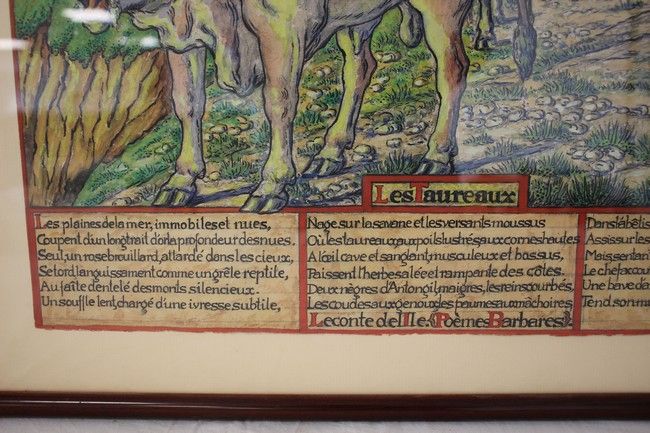 Les Taureaux
Les plaines de la mer, immobiles et nues,
Coupent d'un long trait d'or la profondeur des nues.
Seul, un rose brouillard, attardé dans les cieux,
Se tord languissamment comme un grêle reptile,
Au faîte dentelé des monts silencieux.
Un souffle lent, chargé d'une ivresse subtile,
Nage sur la savane et les versants moussus
Où les taureaux aux poils lustrés, aux cornes hautes
A l'œil cave et sanglant, musculeux et bossus,
Paissent l'herbe salée et rampante des côtes.
Deux nègres d'Antongil, maigres, les reins courbés,
Les coudes aux genoux, les paumes aux mâchoires
Leconte de l'Ile. (Poèmes Barbares).
Dans l'abêti
Assis sur les
Mais, s'en tan
Le chef accou
Une bave d'a
Tend son m